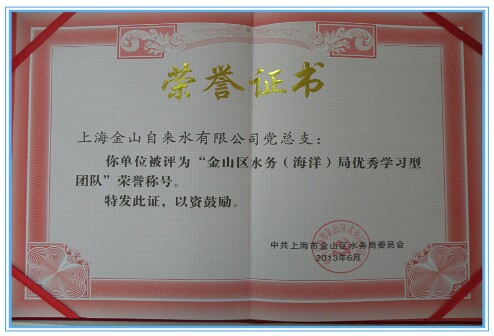 荣誉证书
上海金山自来水有限公司党总支：
你单位被评为“金山区水务（海洋）局优秀学习型
团队”荣誉称号。
特发此证，以资鼓励。
中共上海市金山区水务局委员会
2013年6月